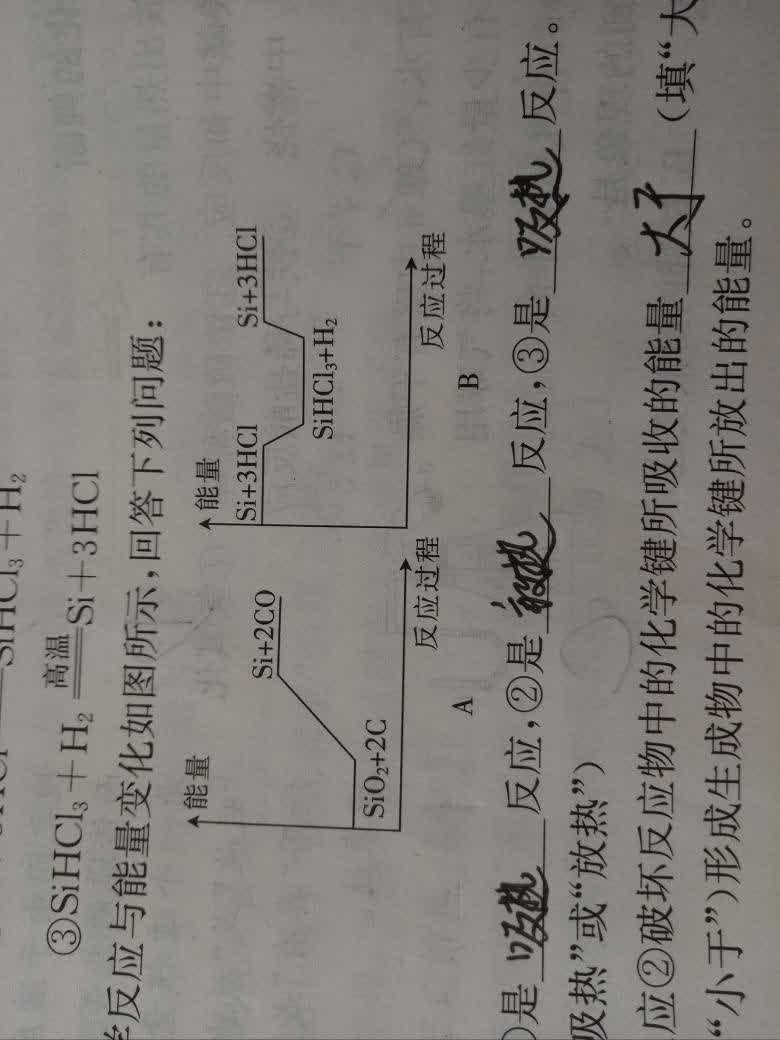 SiHCl₃＋H₂
③SiHCl₃＋H₂ 高温 Si＋3HCl
学反应与能量变化如图所示，回答下列问题：
能量
Si+2CO
SiO₂+2C
反应过程
A
能量
Si+3HCl
Si+3HCl
SiHCl₃+H₂
反应过程
B
是 吸热 反应，②是 放热 反应，③是 吸热 反应。
吸热”或“放热”）
应②破坏反应物中的化学键所吸收的能量 大于 （填“大
“小于”）形成生成物中的化学键所放出的能量。